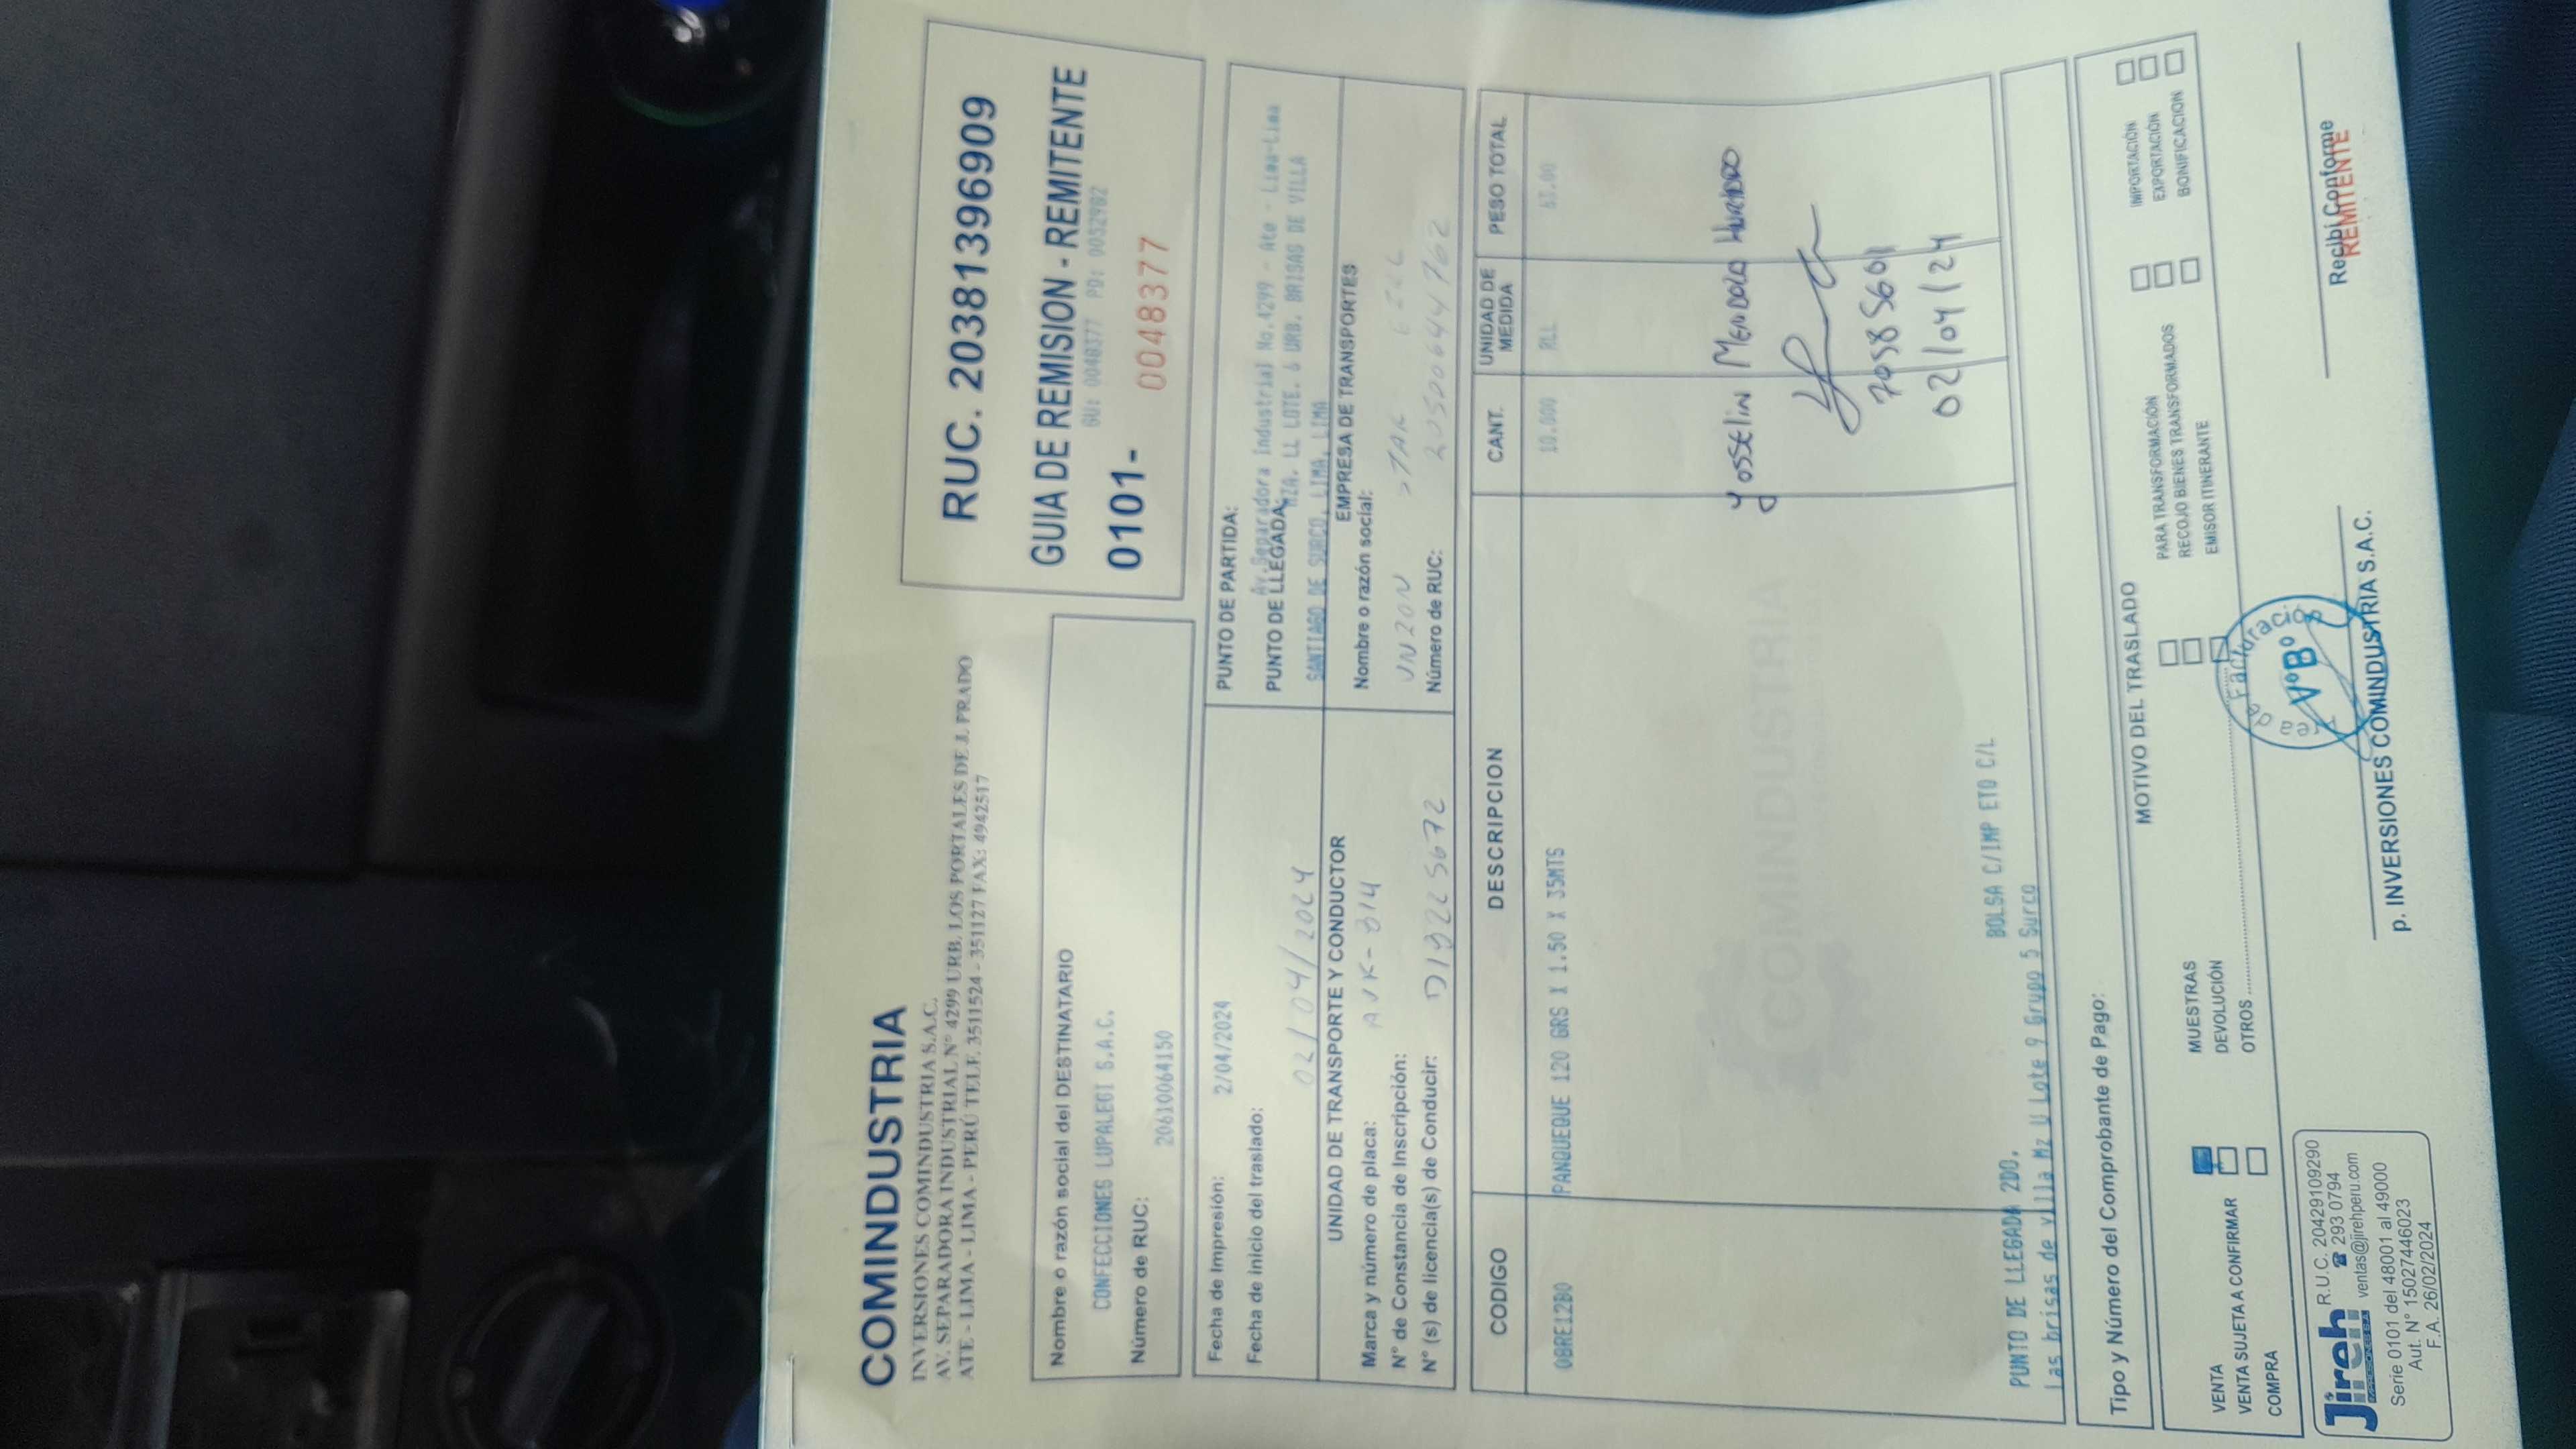 COMINDUSTRIA
INVERSIONES COMINDUSTRIA S.A.C.
AV. SEPARADORA INDUSTRIAL Nº 4299 URB. LOS PORTALES DE J. PRADO
ATE - LIMA - LIMA - PERÚ TELF. 3511524 - 3511271 FAX: 4942517
RUC. 20381396909
GUIA DE REMISION - REMITENTE
GU: 0048377 PD: 0052902
0101- 0048377
Nombre o razón social del DESTINATARIO
CONFECCIONES LUPALEGI S.A.C.
Número de RUC:
20610064150
Fecha de Impresión: 2/04/2024
Fecha de inicio del traslado:
02/04/2024
PUNTO DE PARTIDA:
Av.Separadora Industrial No.4299 - Ate - Lima-Lima
PUNTO DE LLEGADA:
MZA. LL LOTE. 6 URB. BRISAS DE VILLA
SANTIAGO DE SURCO, LIMA, LIMA
UNIDAD DE TRANSPORTE Y CONDUCTOR
Marca y número de placa:
Nº de Constancia de Inscripción:
Nº (s) de licencia(s) de Conducir:
EMPRESA DE TRANSPORTES
Nombre o razón social:
STAR
Número de RUC: 20520644762
CODIGO DESCRIPCION CANT. UNIDAD DE MEDIDA PESO TOTAL
OBRE12B0 PANQUEQUE 120 GRS X 1.50 X 35MTS 10.000 RLL 63.00
COMINDUSTRIA
Yosselin Mendoza Hurtado
02/04/24
BOLSA C/IMP ETO C/L
PUNTO DE LLEGADA 2DO.
Las brisas de villa Mz U Lote 9 Grupo 5 Surco
Tipo y Número del Comprobante de Pago:
MOTIVO DEL TRASLADO
VENTA
VENTA SUJETA A CONFIRMAR
COMPRA
MUESTRAS
DEVOLUCIÓN
OTROS
PARA TRANSFORMACIÓN
RECOJO BIENES TRANSFORMADOS
EMISOR ITINERANTE
IMPORTACIÓN
EXPORTACIÓN
BONIFICACION
Jireh R.U.C. 20429109290
293 0794
ventas@jirehperu.com
Serie 0101 del 48001 al 49000
Aut. Nº 15027446023
F.A. 26/02/2024
Area de Facturación
VºBº
p. INVERSIONES COMINDUSTRIA S.A.C.
Recibí Conforme
REMITENTE